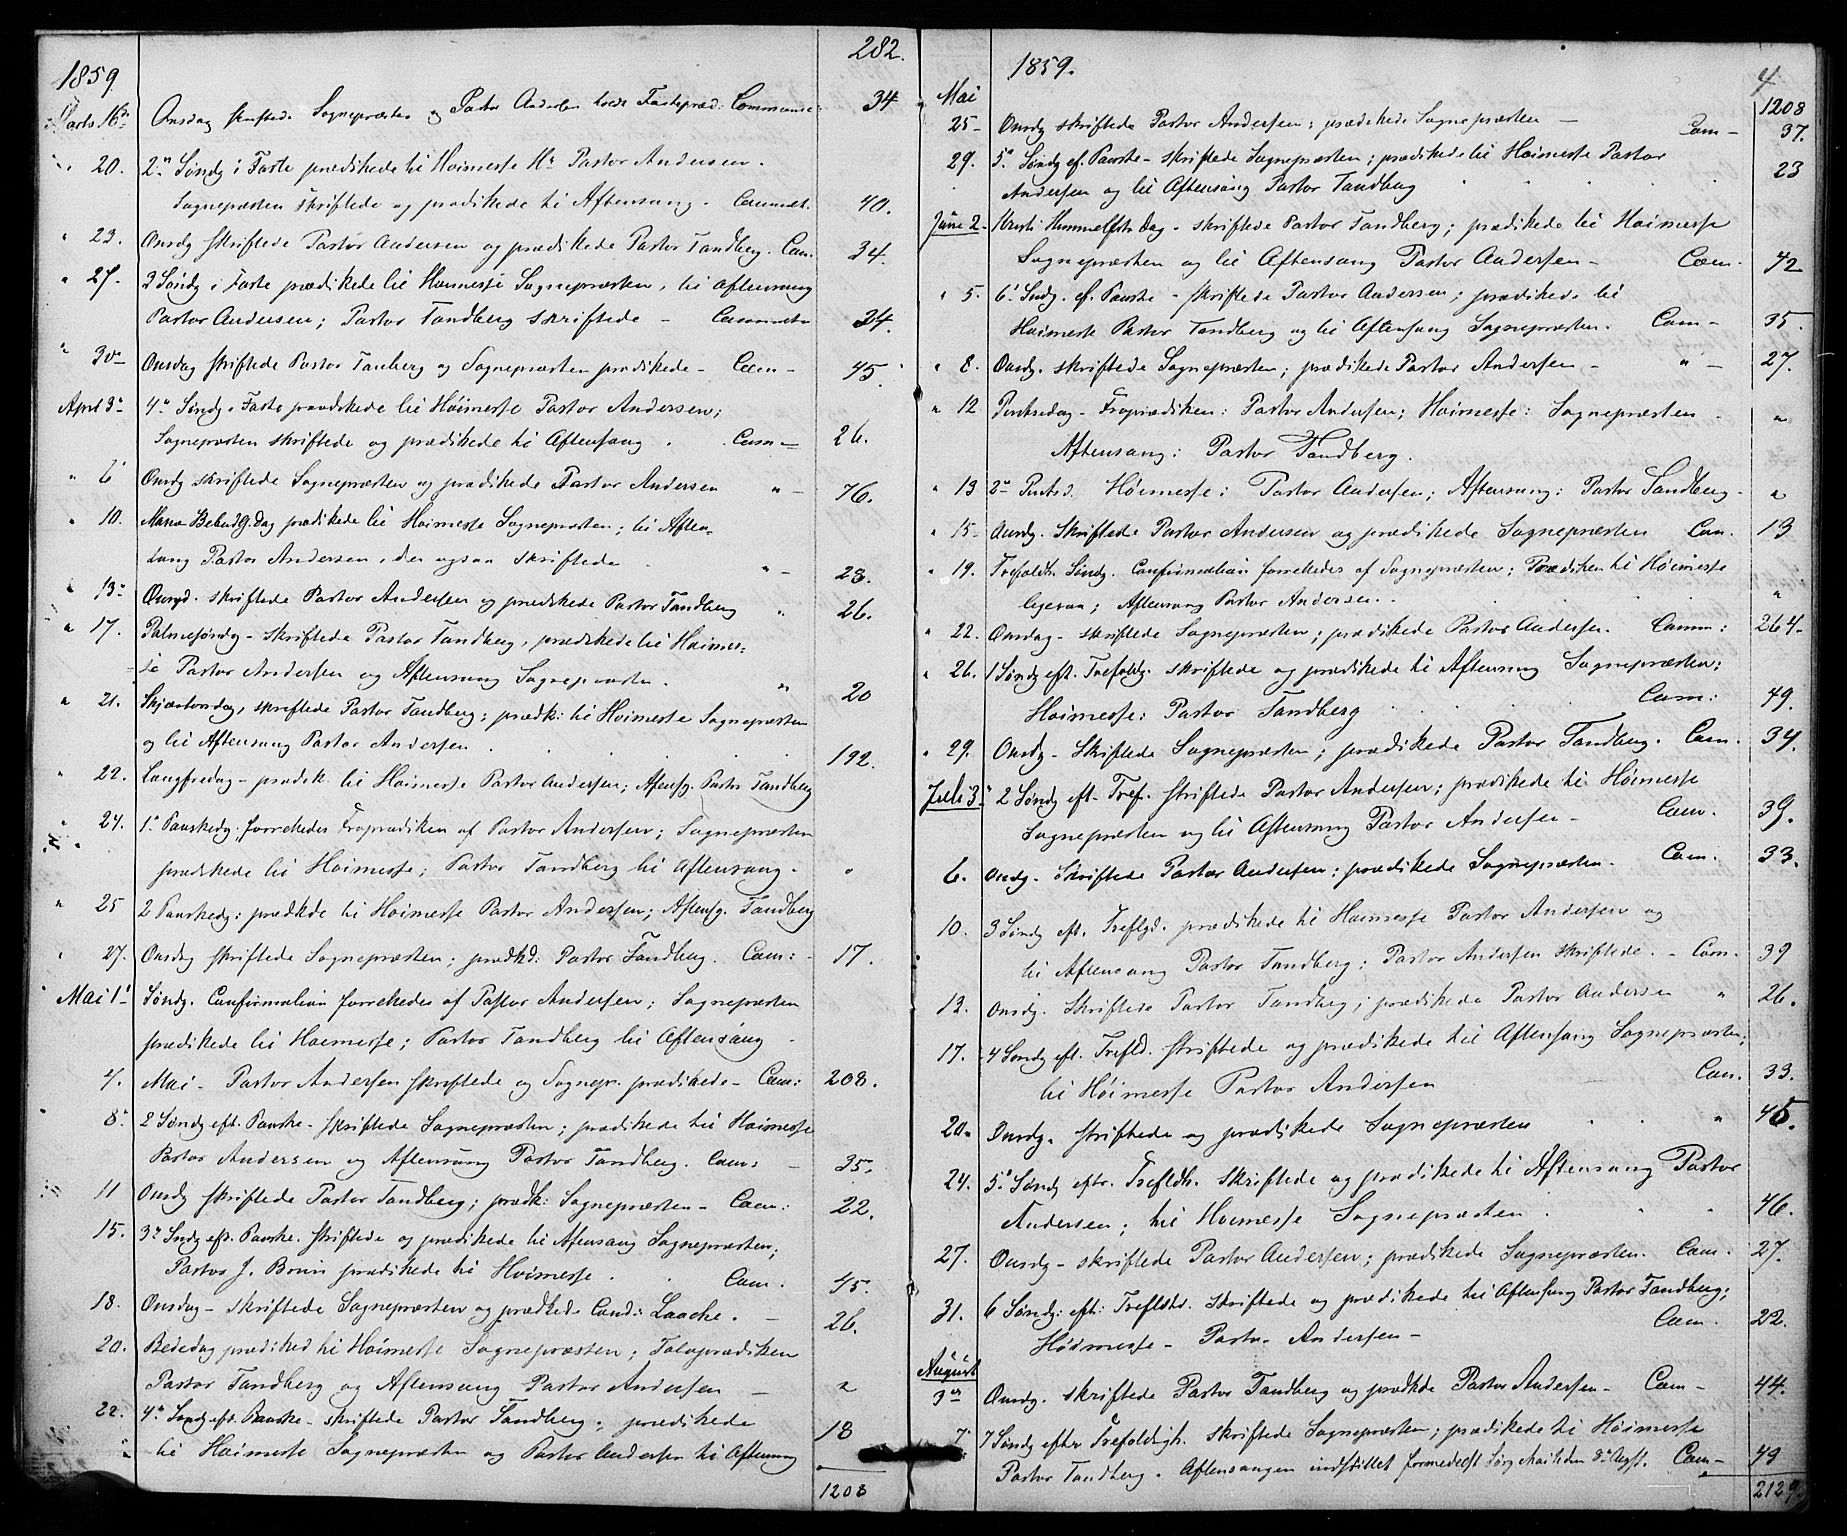 1859.
282.
Marts 16de Onsdag skriftede Sognepræsten og Pastor Andersen holdt Fastepræd: Communic: 34
" 20. 2n Søndg i Faste prædikede til Høimesse Hr Pastor Andersen.
Sognepræsten skriftede og prædikede til Aftensang. Communct. 40.
" 23. Onsdg skriftede Pastor Andersen og prædikede Pastor Tandberg. Com. 34.
" 27. 3 Søndg i Faste prædikede til Høimesse Sognepræsten, til Aftensang
Pastor Andersen; Pastor Tandberg skriftede – Communct– 34.
" 30– Onsdag skriftede Pastor Tandberg og Sognepræsten prædikede – Com – 45.
April 3– 4n Søndg i Faste prædikede til Høimesse Pastor Andersen;
Sognepræsten skriftede og prædikede til Aftensang . . Com – 26.
" 6 Onsdg skriftede Sognepræsten og prædikede Pastor Andersen " – 76.
" 10. Maria Bebud. Dag prædikede til Høimesse Sognepræsten; til Aften-
sang Pastor Andersen, der ogsaa skriftede . " – 28.
" 13– Onsgd. skriftede Pastor Andersen og prædikede Pastor Tandberg " 26.
" 17. Palmesøndg – skriftede Pastor Tandberg, prædikede til Høimes-
se Pastor Andersen og Aftensang Sognepræsten. " 20
" 21. Skjærtorsdag, skriftede Pastor Tandberg; prædk: til Høimesse Sognepræsten
og til Aftensang Pastor Andersen . . . . 192.
" 22. Langfredag – prædik. til Høimesse Pastor Andersen; Aftensg. Pastor Tandberg
" 24. 1n Paaskedg. forrettedes Froprædiken af Pastor Andersen; Sognepræsten
prædikede til Høimesse; Pastor Tandberg til Aftensang. "
" 25 2 Paaskedg: prædkde til Høimesse Pastor Andersen; Aftensg. Tandberg
" 27. Onsdag skriftede Sognepræsten; prædkd: Pastor Tandberg. Com: – 17.
Mai 1– Søndg. Confirmation forrettedes af Pastor Andersen; Sognepræsten
prædikede til Høimesse; Pastor Tandberg til Aftensang
4. Mai – Pastor Andersen skriftede og Sognepr. prædikede – Com: 208.
8– 2 Søndg eft. Paaske – skriftede Sognepræsten; prædikede til Høimesse
Pastor Andersen og Aftensang Pastor Tandberg. Com: – 35.
11 Onsdg skriftede Pastor Tandberg; prædk: Sognepræsten – Com: 22.
15. 3n Sndg eft. Paaske. skriftede og prædikede til Aftensang Sognepræsten;
Pastor J. Bruun prædikede til Høimesse. . Com. 45.
18. Onsdag – skriftede Sognepræsten og prædkede Cand: Laache. – 26.
20. Bededag prædiked til Høimesse Sognepræsten;
Pastor Tandberg og Aftensang Pastor Andersen – "
22. 4n Søndg eft. Paaske – skriftede Pastor Tandberg; prædikede 18
til Høimesse Sognepræsten og Pastor Andersen til Aftensang
1208
1859.
4
Mai 1208
25– Onsdg skriftede Pastor Andersen; prædikede Sognepræsten – Com – 37.
29. 5n Søndg ef. Paaske – skriftede Sognepræsten; prædikede til Høimesse Pastor
Andersen og til Aftensang Pastor Tandberg . . . 23
Juni 2– Kristi Himmelfts Dag – skriftede Pastor Tandberg; prædikede til Høimesse
Sognepræsten og til Aftensang Pastor Andersen – Com. 42
" 5. 6n Sndg. ef. Paaske – skriftede Pastor Andersen; prædikede til
Høimesse Pastor Tandberg og til Aftensang Sognepræsten. Com – 35.
" 8. Onsdg. skriftede Sognepræsten; prædikede Pastor Andersen – " – 27.
" 12 Pintsedag – Froprædiken: Pastor Andersen; Høimesse: Sognepræsten "
Aftensang: Pastor Tandberg.
" 13 2n Pintsd. Høimesse: Pastor Andersen; Aftensang: Pastor Tandberg – "
" 15– Onsdg. Skriftede Pastor Andersen og prædikede Sognepræsten Com. 13
" 19. Trefoldh. Søndg. Confirmation forrettedes af Sognepræsten; Prædiken til Høimesse
ligesaa; Aftensang Pastor Andersen . . . . "
" 22. Onsdag – skriftede Sognepræsten; prædikede Pastor Andersen. Comm: 264–
" 26. 1 Søndg eft. Trefoldg. skriftede og prædikede til Aftensang Sognepræsten;
Høimesse: Pastor Tandberg . . . Com: 49.
" 29. Onsdg – Skriftede Sognepræsten; prædikede Pastor Tandberg. Com. 34.
Juli 3– 2 Søndg eft. Tref. skriftede Pastor Andersen; prædikede til Høimesse
Sognepræsten og til Aftensang Pastor Andersen – Com. 39.
6. Onsdg. Skriftede Pastor Andersen; prædikede Sognepræsten. Com. 33.
10. 3 Søndg eft. Treflgd. prædikede til Høimesse Pastor Andersen og
til Aftensang Pastor Tandberg; Pastor Andersen skriftede. – Com. 39
13. Onsdg. Skriftede Pastor Tandberg; prædikede Pastor Andersen " 26.
17. 4 Søndg eft. Trefld. skriftede og prædikede til Aftensang Sognepræsten;
til Høimesse Pastor Andersen Com. 33.
20. Onsdg. skriftede og prædikede Sognepræsten . . " 45.
24. 5n Søndg eftr. Trefldh. skriftede og prædikede til Aftensang Pastor
Andersen; til Høimesse Sognepræsten . " " 46.
27. Onsdg – skriftede Pastor Andersen; prædikede Sognepræsten. Com. 27.
31. 6 Søndg: eft: Trefldhd. skriftede og prædikede til Aftensang Pastor Tandberg;
Høimesse – Pastor Andersen – Com. 22.
August
3– Onsdg. skriftede Pastor Tandberg og prædkde Pastor Andersen – Com – 44.
7. 7 Søndg efter Trefoldigh. skriftede Sognepræsten; prædikede til Høimesse
Pastor Tandberg. Aftensangen indstillet formedelst Sørgehøitiden 8n Augst. Com – 49
2129.